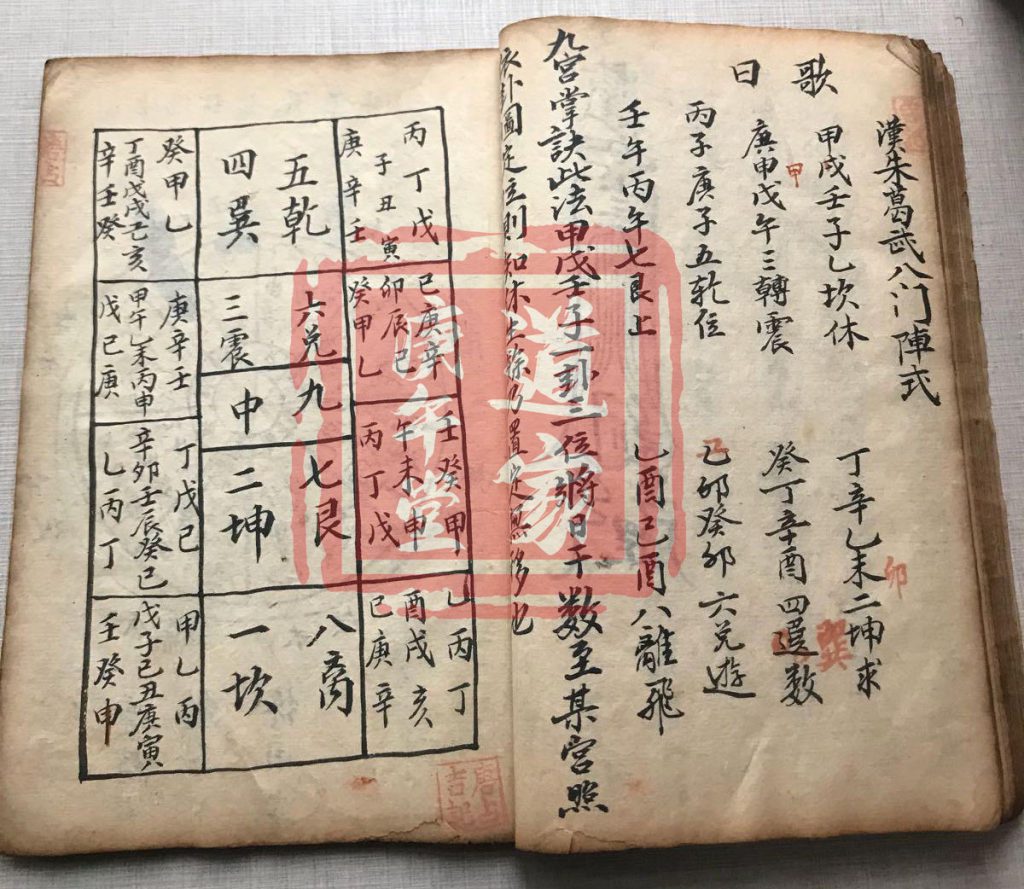 漢朱葛武八门陣式
歌
日
甲戌壬子乙坎休
丁辛乙未二坤求
卯
庚申戊午三轉震
甲
癸丁辛酉四
数
巽
丙子庚子五乾位
乙卯癸卯六兑遊
己
壬午丙午七艮上
乙酉己酉八離飛
九宮掌訣此法甲戊壬子一卦三位將日干数至某宮照
卦圖定位則知休上
置定
移也
丙丁戊
子丑寅
庚辛壬
己庚辛
卯辰巳
癸甲乙
壬癸甲
午未申
丙丁戊
乙丙丁
酉戌亥
己庚辛
五乾
四巽
六兑
三震
九
中
七艮
二坤
八离
一坎
癸甲乙
丁酉戊戌己亥
辛壬癸
庚辛壬
甲午乙未丙申
戊己庚
丁戊己
辛卯壬辰癸巳
乙丙丁
甲乙丙
戊子己丑庚寅
壬癸申
道家
庚午堂